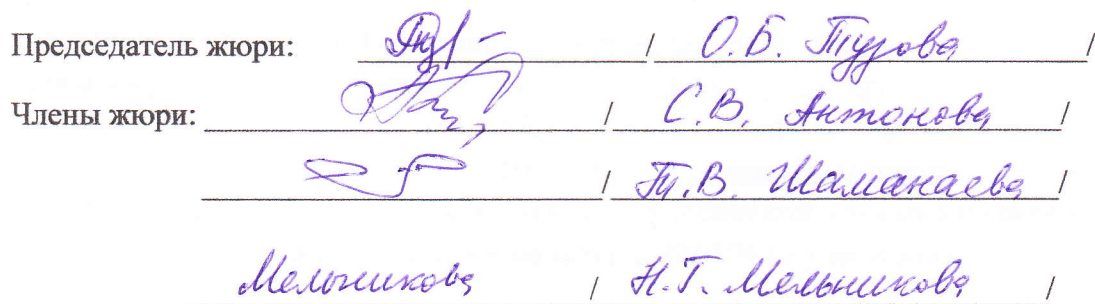 Председатель жюри: / О.Б. Тузова /
Члены жюри: / С.В. Антонова /
/ Т.В. Шаманаева /
Мельникова / Н.Г. Мельникова /